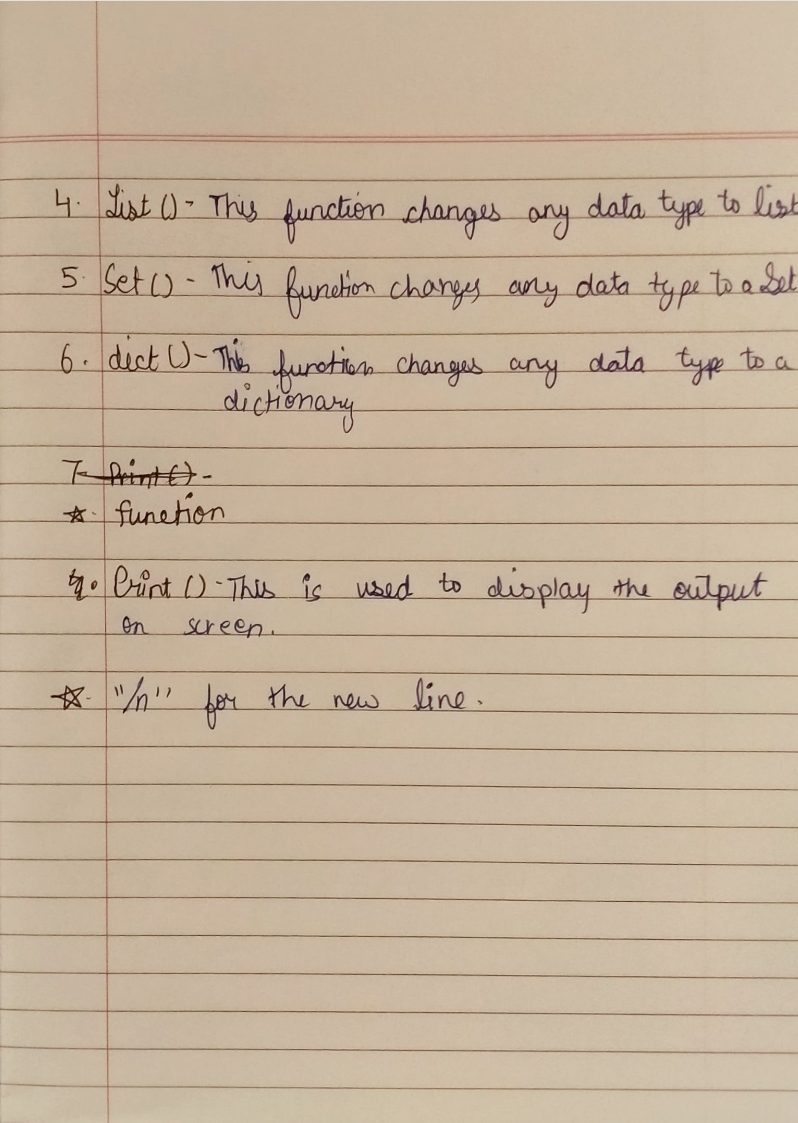 4. List () - This function changes any data type to list
5. Set () - This function changes any data type to a Set
6. dict () - This function changes any data type to a
dictionary
7. Print () -
☆. function
Print () - This is used to display the output
on screen.
☆. "/n" for the new line.